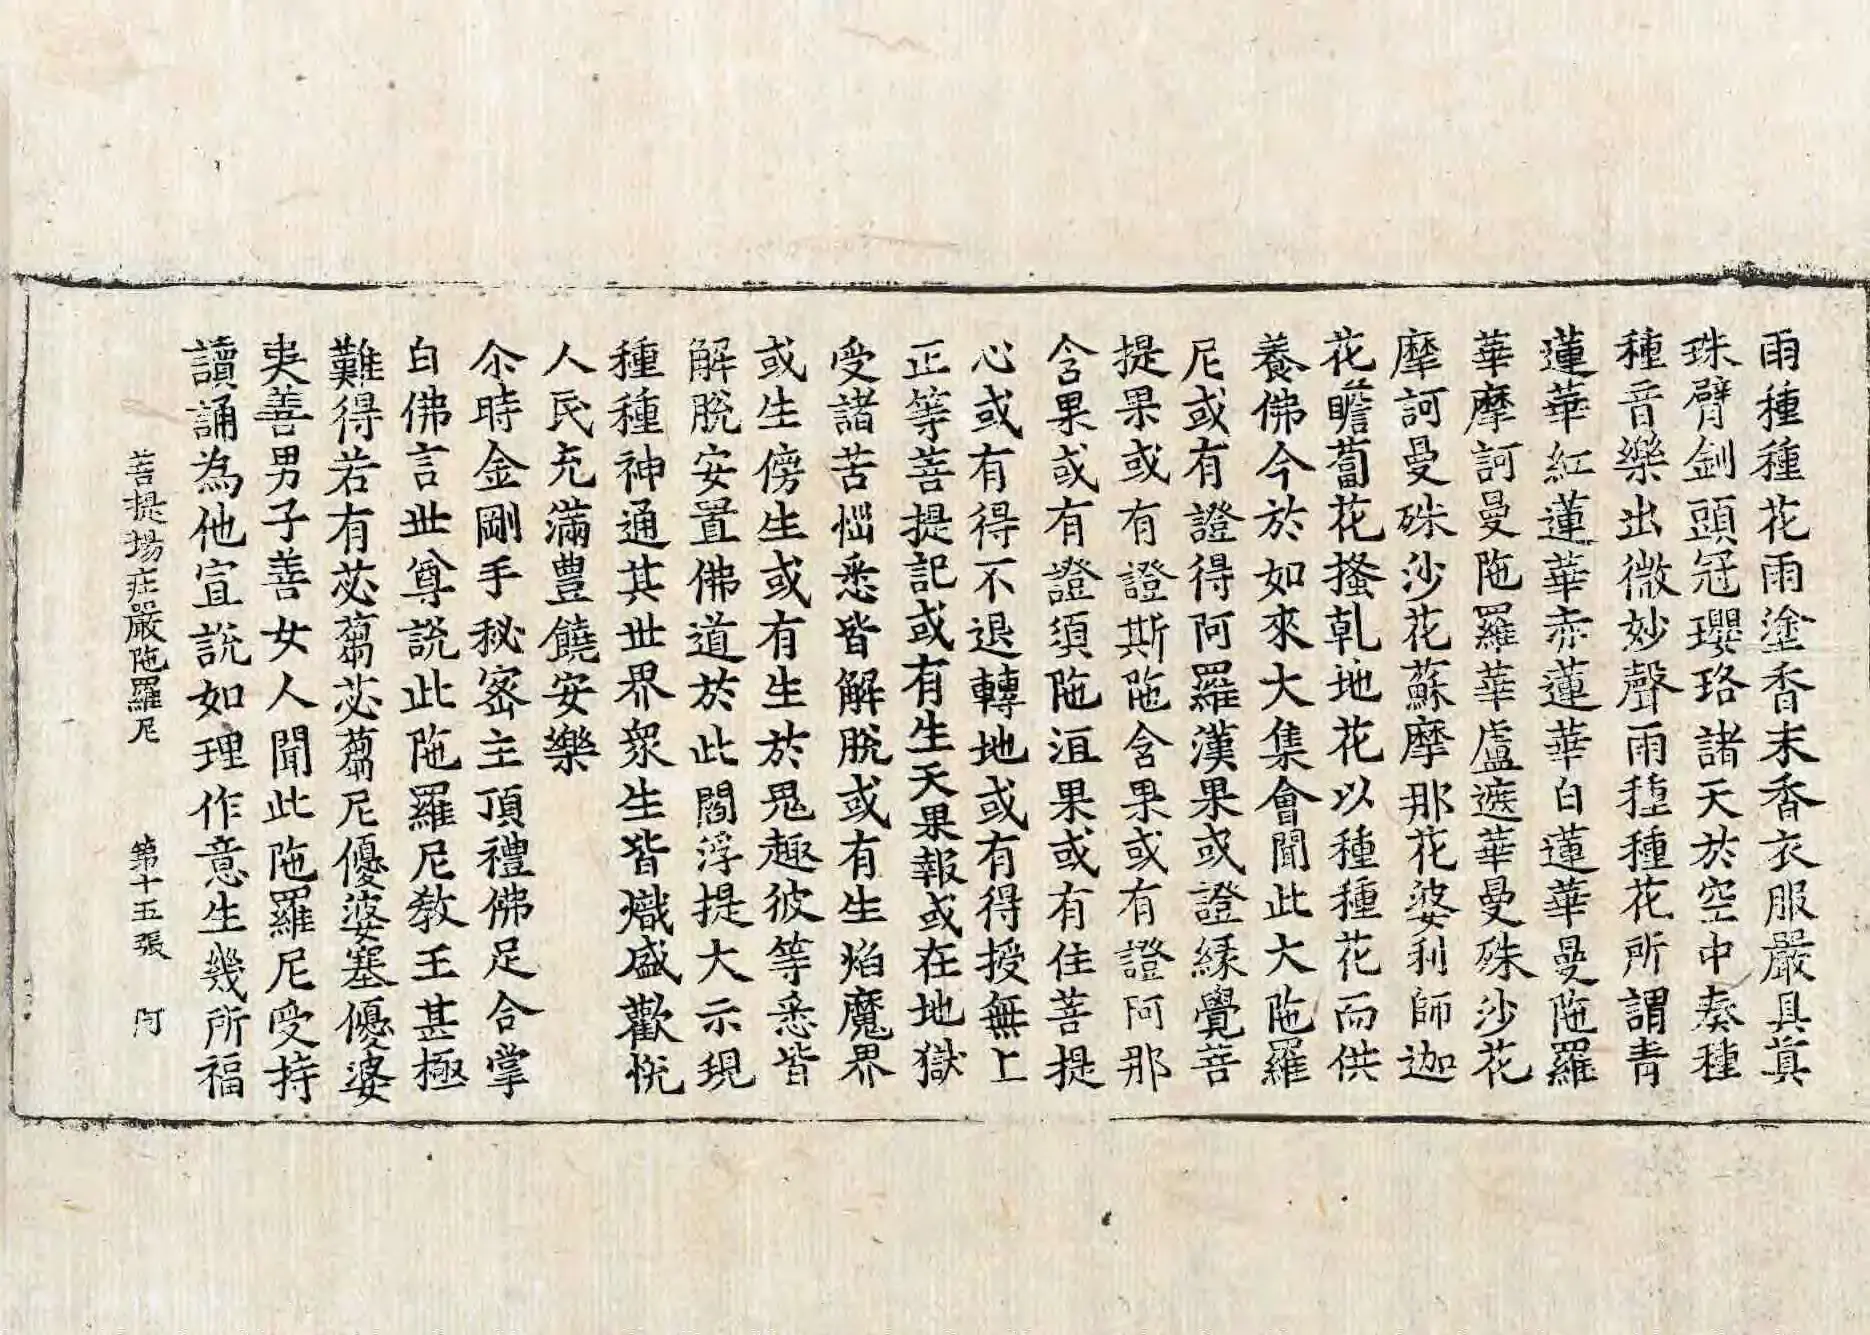 雨種種花雨塗香末香衣服嚴具真
珠臂釧頭冠瓔珞諸天於空中奏種
種音樂出微妙聲雨種種花所謂青
蓮華紅蓮華赤蓮華白蓮華曼陁羅
華摩訶曼陁羅華盧遮華曼殊沙花
摩訶曼殊沙花蘇摩那花婆利師迦
花瞻蔔花搔乹地花以種種花而供
養佛今於如來大集會聞此大陁羅
尼或有證得阿羅漢果或證縁覺菩
提果或有證斯陁含果或有證阿那
含果或有證須陁洹果或有住菩提
心或有得不退轉地或有得授無上
正等菩提記或有生天果報或在地獄
受諸苦惱悉皆解脫或有生焰魔界
或生傍生或有生於鬼趣彼等悉皆
解脫安置佛道於此閻浮提大示現
種種神通其世界衆生皆熾盛歡悅
人民充滿豊饒安樂
尒時金剛手秘密主頂禮佛足合掌
白佛言世尊説此陁羅尼教王甚極
難得若有苾蒭苾蒭尼優婆塞優婆
夷善男子善女人聞此陁羅尼受持
讀誦為他宣說如理作意生幾所福
菩提場莊嚴陁羅尼 第十五張 阿